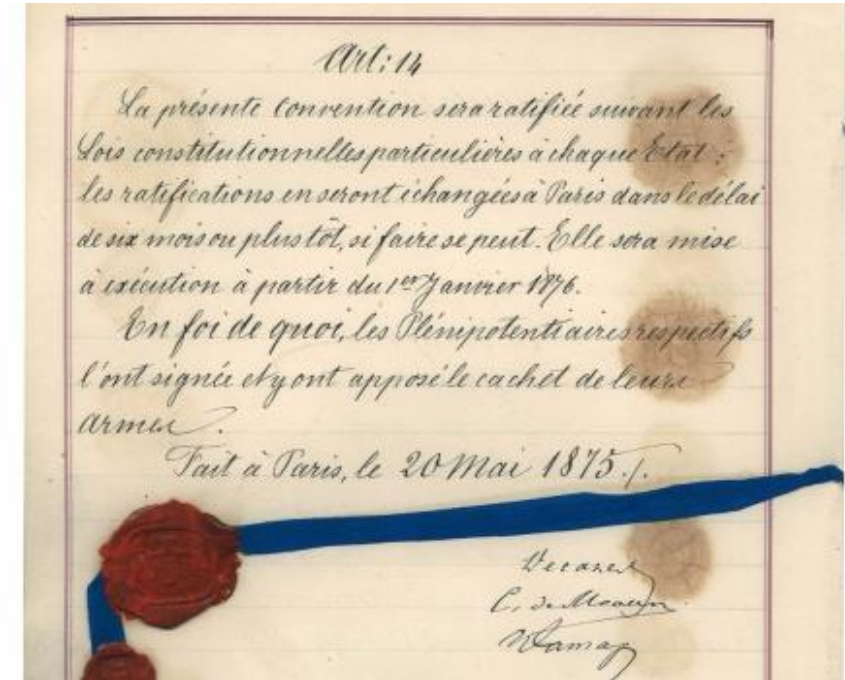 Art: 14
La présente Convention sera ratifiée suivant les
Lois constitutionnelles particulières à chaque Etat ;
les ratifications en seront échangées à Paris dans le délai
de six mois ou plus tôt, si faire se peut. Elle sera mise
à exécution à partir du 1er Janvier 1876.
En foi de quoi, les Plénipotentiaires respectifs
l'ont signée et y ont apposé le cachet de leurs
armes.
Fait à Paris, le 20 Mai 1875 ./.
Decazes
C. de Meaux